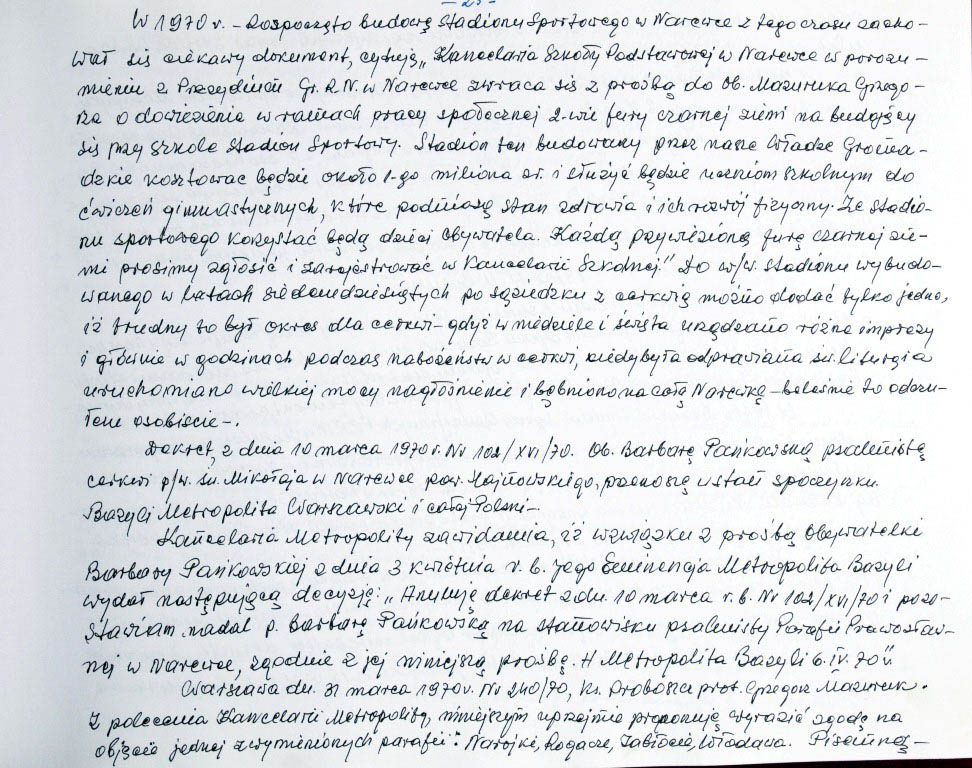 - 25 -
W 1970 r. - Rozpoczęto budowę Stadionu Sportowego w Narewce z tego czasu zacho-
wał się ciekawy dokument, cytuję „Kancelaria Szkoły Podstawowej w Narewce w porozu-
mieniu z Prezydium Gr. R. N. w Narewce zwraca się z prośbą do Ob. Mazuruka Grzego-
rza o dowiezienie w ramach pracy społecznej 2-wie fury czarnej ziemi na budujący
się przy szkole Stadion Sportowy. Stadion ten budowany przez nasze Władze Groma-
dzkie kosztować będzie około 1-go miliona zł. i służyć będzie uczniom szkolnym do
ćwiczeń gimnastycznych, które podniosą stan zdrowia i ich rozwój fizyczny. Ze stadio-
nu sportowego korzystać będą dzieci Obywatela. Każdą przywiezioną furę czarnej zie-
mi prosimy zgłosić i zarejestrować w Kancelarii Szkolnej." Do w/w. stadionu wybudo-
wanego w latach siedemdziesiątych po sąsiedzku z cerkwią można dodać tylko jedno,
iż trudny to był okres dla cerkwi - gdyż w niedziele i święta urządzano różne imprezy
i głównie w godzinach podczas nabożeństw w cerkwi, kiedy była odprawiana św. liturgia
uruchamiano wielkiej mocy nagłośnienie i bębniono na całą Narewkę - boleśnie to odczu-
łem osobiście -.
Dekret, z dnia 10 marca 1970 r. Nr 102/XVI/70. Ob. Barbarę Pańkowską psalmistę
cerkwi p/w. św. Mikołaja w Narewce pow. Hajnowskiego, przenoszę w stan spoczynku.
Bazyli Metropolita Warszawski i całej Polski -
Kancelaria Metropolity zawiadamia, iż w związku z prośbą Obywatelki
Barbary Pańkowskiej z dnia 3 kwietnia r. b. Jego Eminencja Metropolita Bazyli
wydał następującą decyzję: „Anuluję dekret z dn. 10 marca r. b. Nr 102/XVI/70 i pozo-
stawiam nadal p. Barbarę Pańkowską na stanowisku psalmisty Parafii Prawosław-
nej w Narewce, zgodnie z jej niniejszą prośbę. + Metropolita Bazyli 6. IV. 70 r.
Warszawa dn. 31 marca 1970 r. Nr 240/70, Ks. Proboszcz prot. Grzegorz Mazuruk.
Z polecenia Kancelarii Metropolity, niniejszym uprzejmie proponuję wyrazić zgodę na
objęcie jednej z wymienionych parafii: Narojki, Rogacze, Zabłocie, Włodawa. Pisemną -